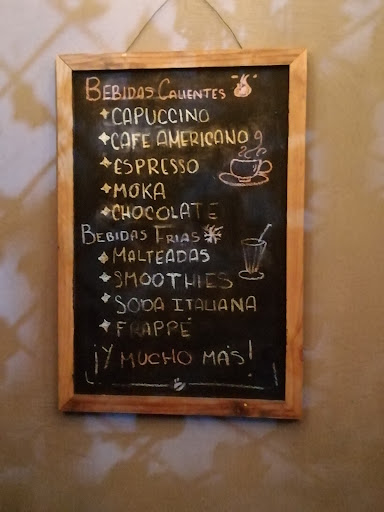 BEBIDAS CALIENTES
CAPUCCINO
CAFE AMERICANO
ESPRESSO
MOKA
CHOCOLATE
BEBIDAS FRIAS
MALTEADAS
SMOOTHIES
SODA ITALIANA
FRAPPÉ
¡Y MUCHO MÁS!